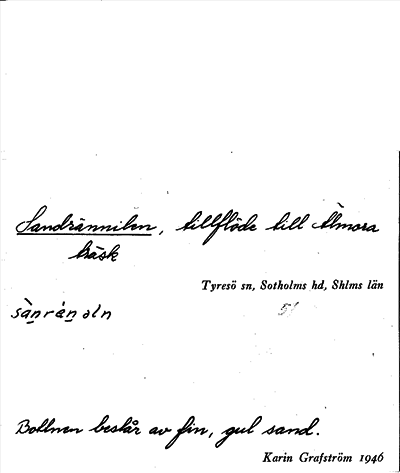 Sandrännilen, tillflöde till Älmora
träsk
Tyresö sn, Sotholms hd, Shlms län
51
Bottnen består av fin, gul sand.
Karin Grafström 1946